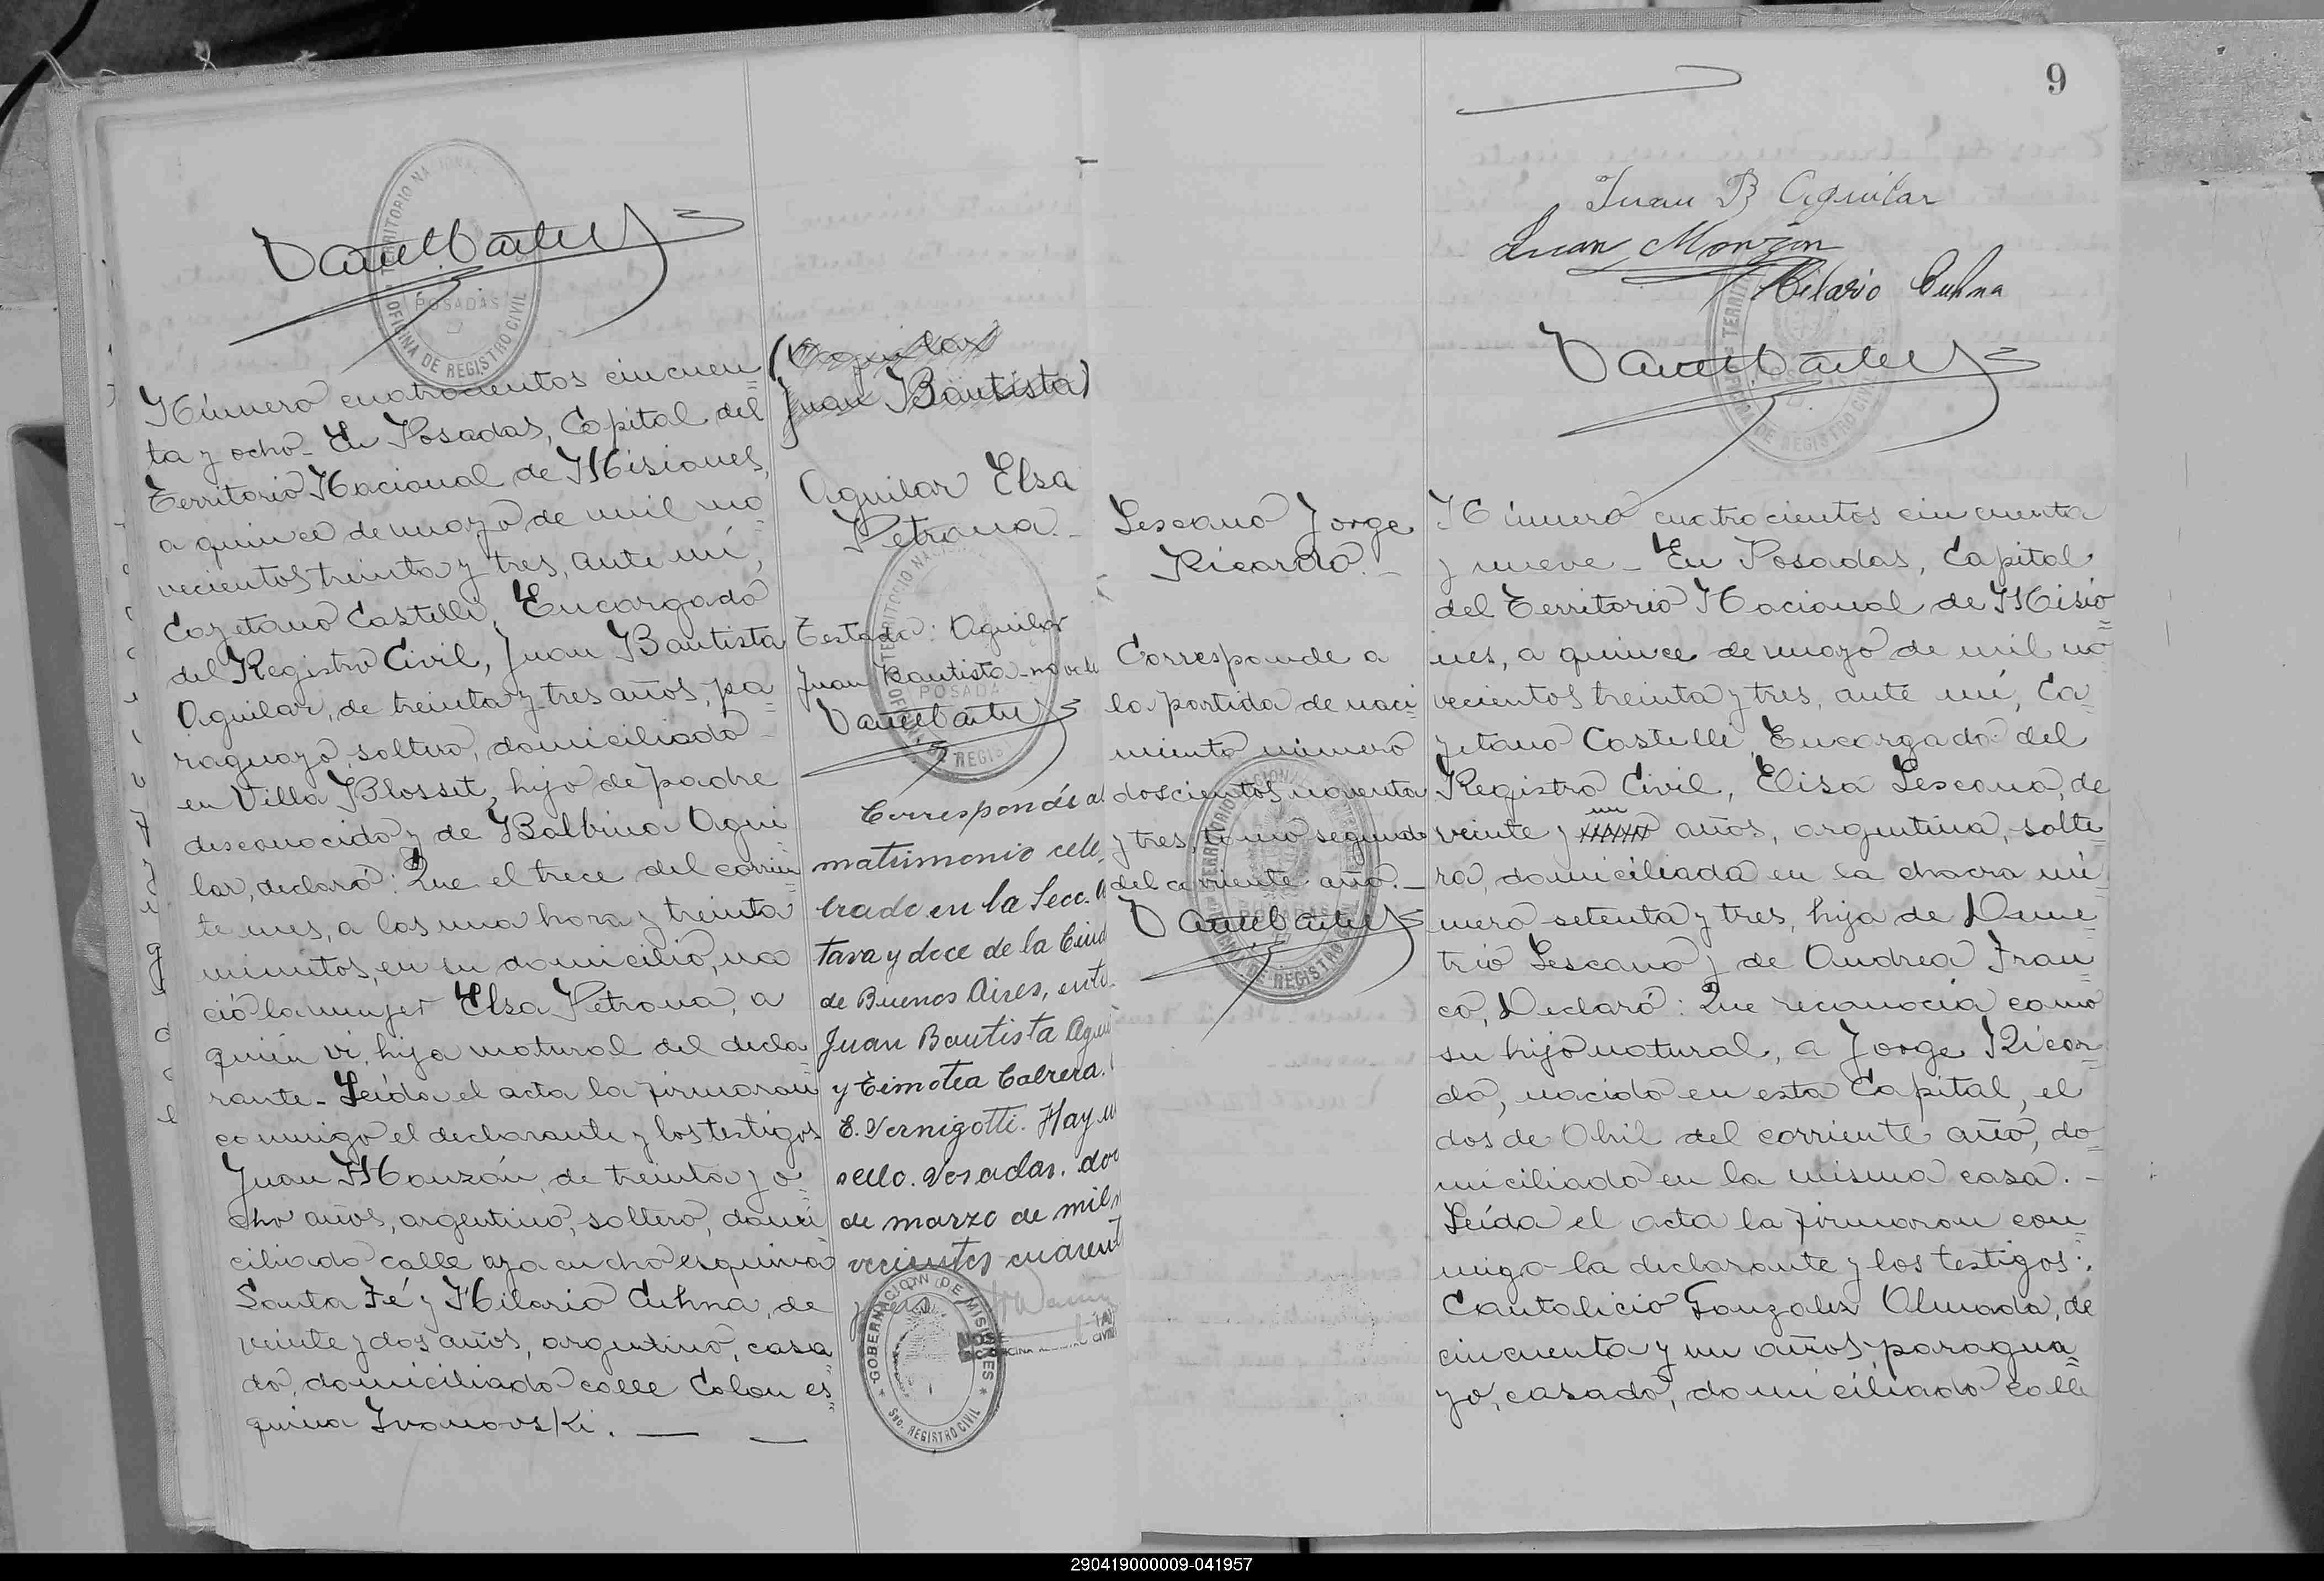 TERRITORIO NACIONAL
POSADAS
OFICINA DE REGISTRO CIVIL
Número cuatrocientos cincuen
ta y ocho_ En Posadas, Capital del
Territorio Nacional de Misiones,
a quince de mayo de mil no
vecientos treinta y tres, ante mí,
Cayetano Castelli, Encargado
del Registro Civil, Juan Bautista
Aguilar, de treinta y tres años, pa
raguayo, soltero, domiciliado
en Villa Blosset, hijo de padre
desconocido y de Balbina Agui
lar, declaró: Que el trece del corrien
te mes, a las una hora y treinta
minutos, en su domicilio, na
ció la mujer Elsa Petrona, a
quien vi, hija natural del decla
rante_ Leída el acta la firmaron
conmigo el declarante y los testigos
Juan Monzón, de treinta y o
cho años, argentino, soltero, domi
ciliado calle ayacucho esquina
Santa Fé y Hilario Cuhna, de
veinte y dos años, argentino, casa
do, domiciliado calle Colon es
quina Ivanovski.
(Aguilar
Juan Bautista)
Aguilar Elsa
Petrona._
Testado: Aguilar
Juan Bautista_no vale
POSADA
Corresponde al
matrimonio cele
brado en la Secc.
tava y doce de la Ciud
de Buenos Aires, entre
Juan Bautista Agui
y Timotea Cabrera.
E. Vernigotti. Hay un
sello. Posadas, doce
de marzo de mil n
vecientos cuarent
GOBERNACION DE MISIONES
Sec. REGISTRO CIVIL
9
Juan B Aguilar
Juan Monzon
Hilario Cuhna
Lescano Jorge
Ricardo._
Corresponde a
la partida de naci
miento número
doscientos noventa
y tres, tomo segundo
del corriente año._
Número cuatrocientos cincuenta
y nueve_ En Posadas, Capital
del Territorio Nacional de Misio
nes, a quince de mayo de mil no
vecientos treinta y tres, ante mí, Ca
yetano Castelli, Encargado del
Registro Civil, Elisa Lescano, de
un
veinte y años, argentina, solte
ra, domiciliada en la chacra nú
mero setenta y tres, hija de Deme
trio Lescano y de Andrea Fran
co, Declaró: Que reconocía como
su hijo natural, a Jorge Ricar
do, nacido en esta Capital, el
dos de Abril del corriente año, do
miciliado en la misma casa._
Leída el acta la firmaron con
migo la declarante y los testigos:
Cantalicio Gonzalez Almada, de
cincuenta y un años, paragua
yo, casado, domiciliado calle
290419000009-041957